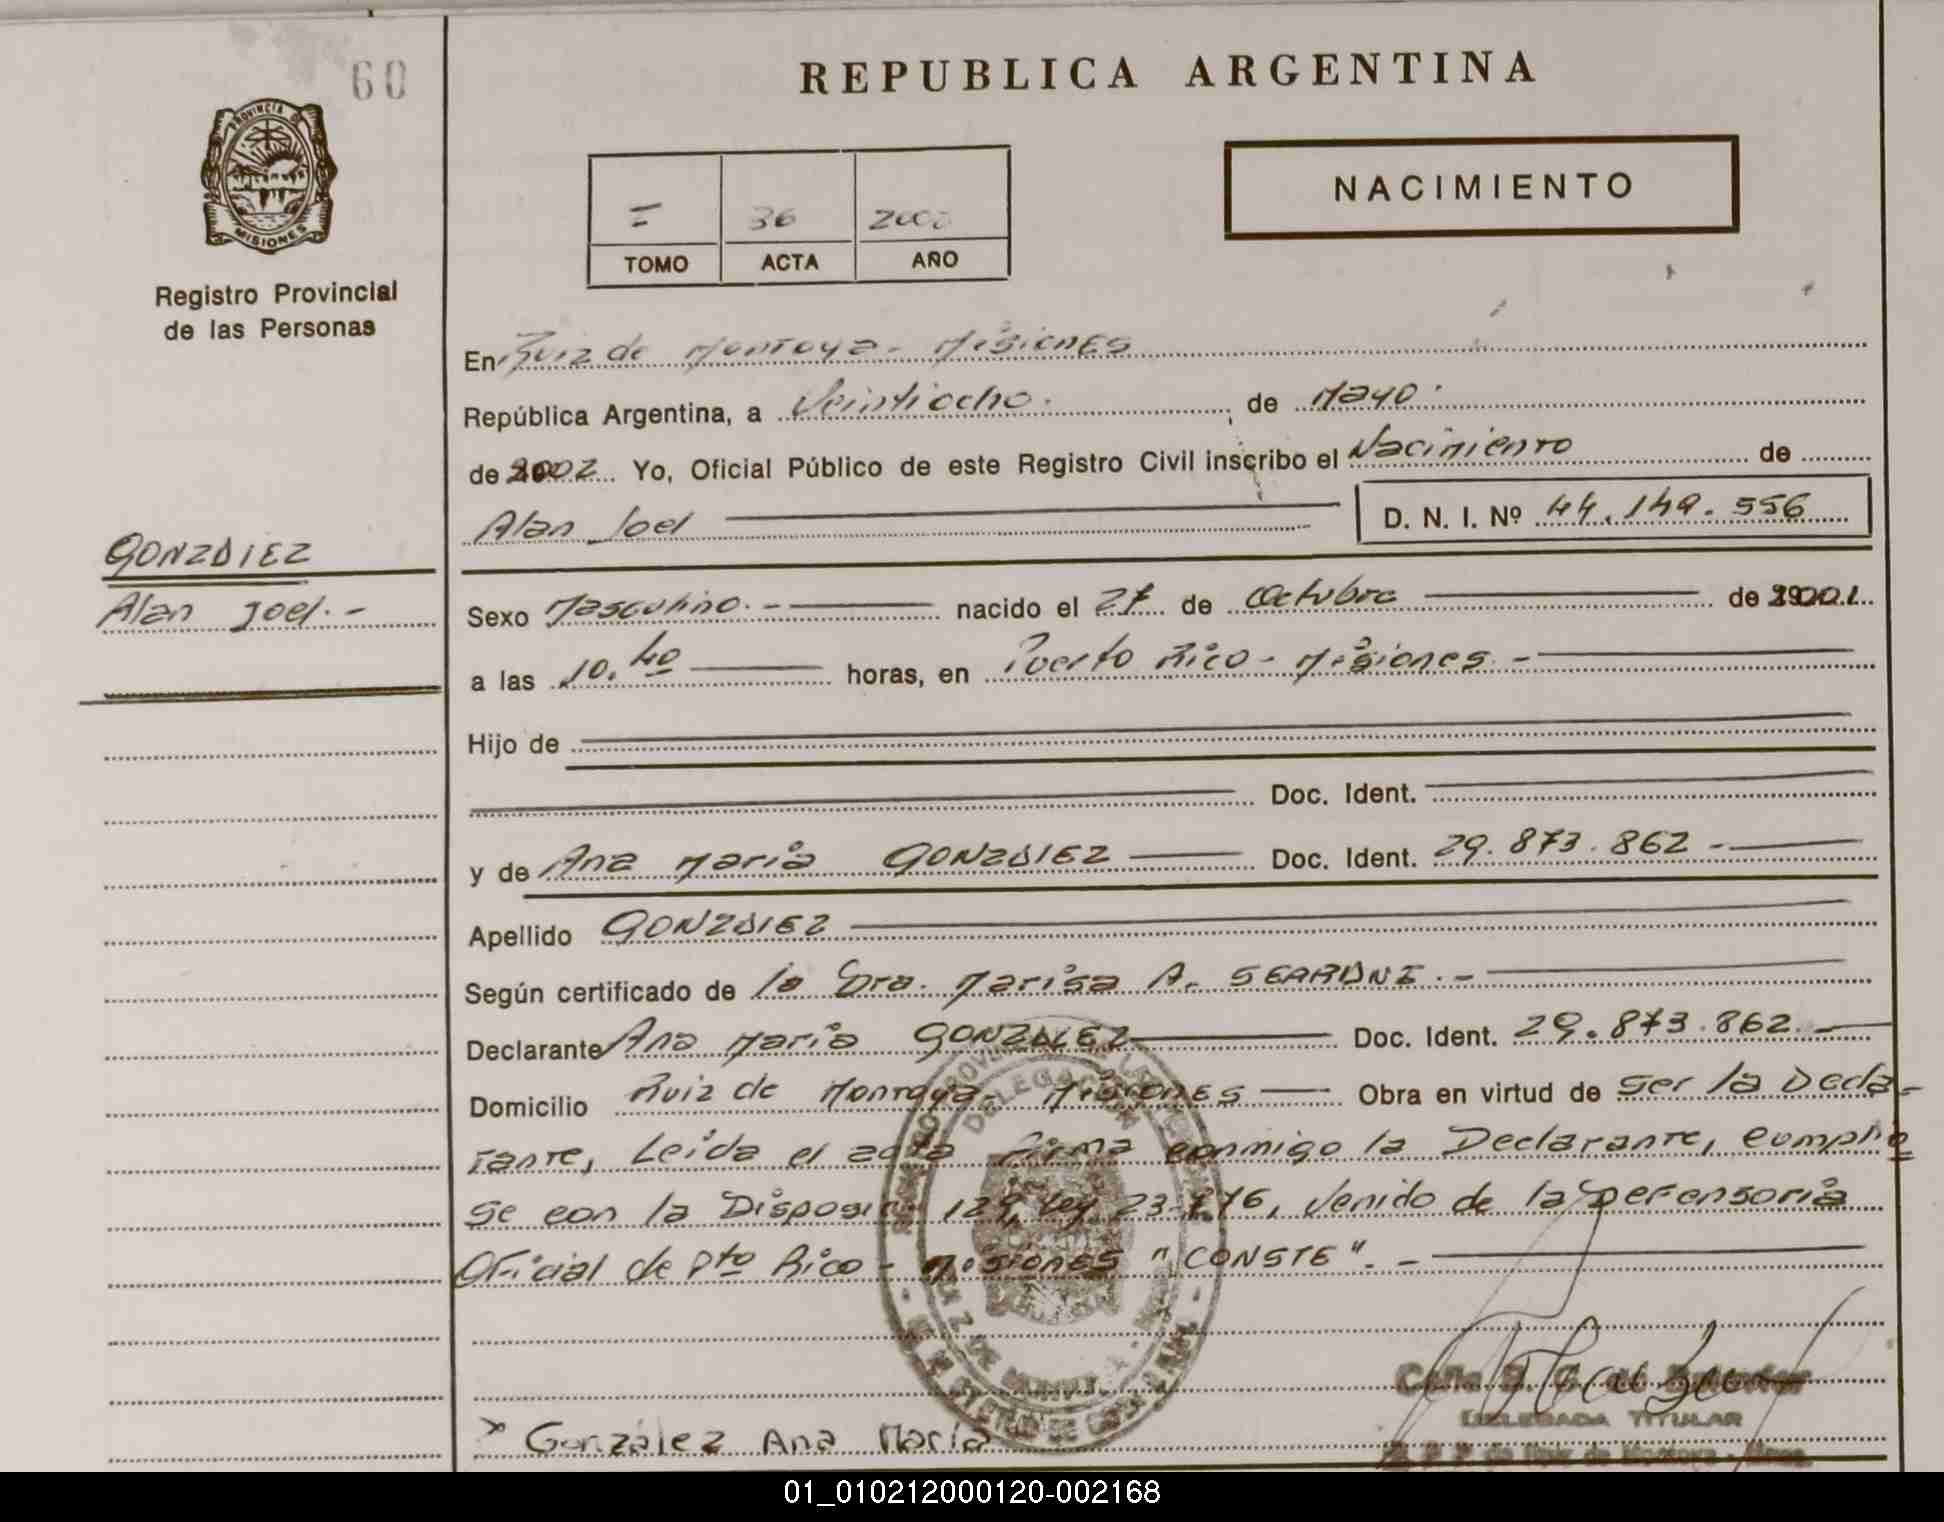 60
REPUBLICA ARGENTINA
PROVINCIA DE
MISIONES
Registro Provincial
de las Personas
NACIMIENTO
= 36 2002
TOMO ACTA AÑO
En Ruiz de Montoya - Misiones
República Argentina, a Veintiocho. de Mayo.
de 2002 Yo, Oficial Público de este Registro Civil inscribo el Nacimiento de
Alan Joel D. N. I. Nº 44.149.556
GONZALEZ
Alan Joel.-
Sexo Masculino.- nacido el 27 de Octubre de 2001
a las 10.40 horas, en Puerto Rico - Misiones -
Hijo de
Doc. Ident.
y de Ana María GONZALEZ Doc. Ident. 29.873.862 -
Apellido GONZALEZ
Según certificado de la Dra. Marisa A.
Declarante Ana María GONZALEZ Doc. Ident. 29.873.862
Domicilio Ruiz de Montoya - Misiones Obra en virtud de Ser la Decla-
rante, Leída el acta firma conmigo la Declarante,
se con la Ley venido de la Defensoría
Oficial de Pto Rico - Misiones "CONSTE". -
DELEGACION
DELEGADA TITULAR
x González Ana María
01_010212000120-002168